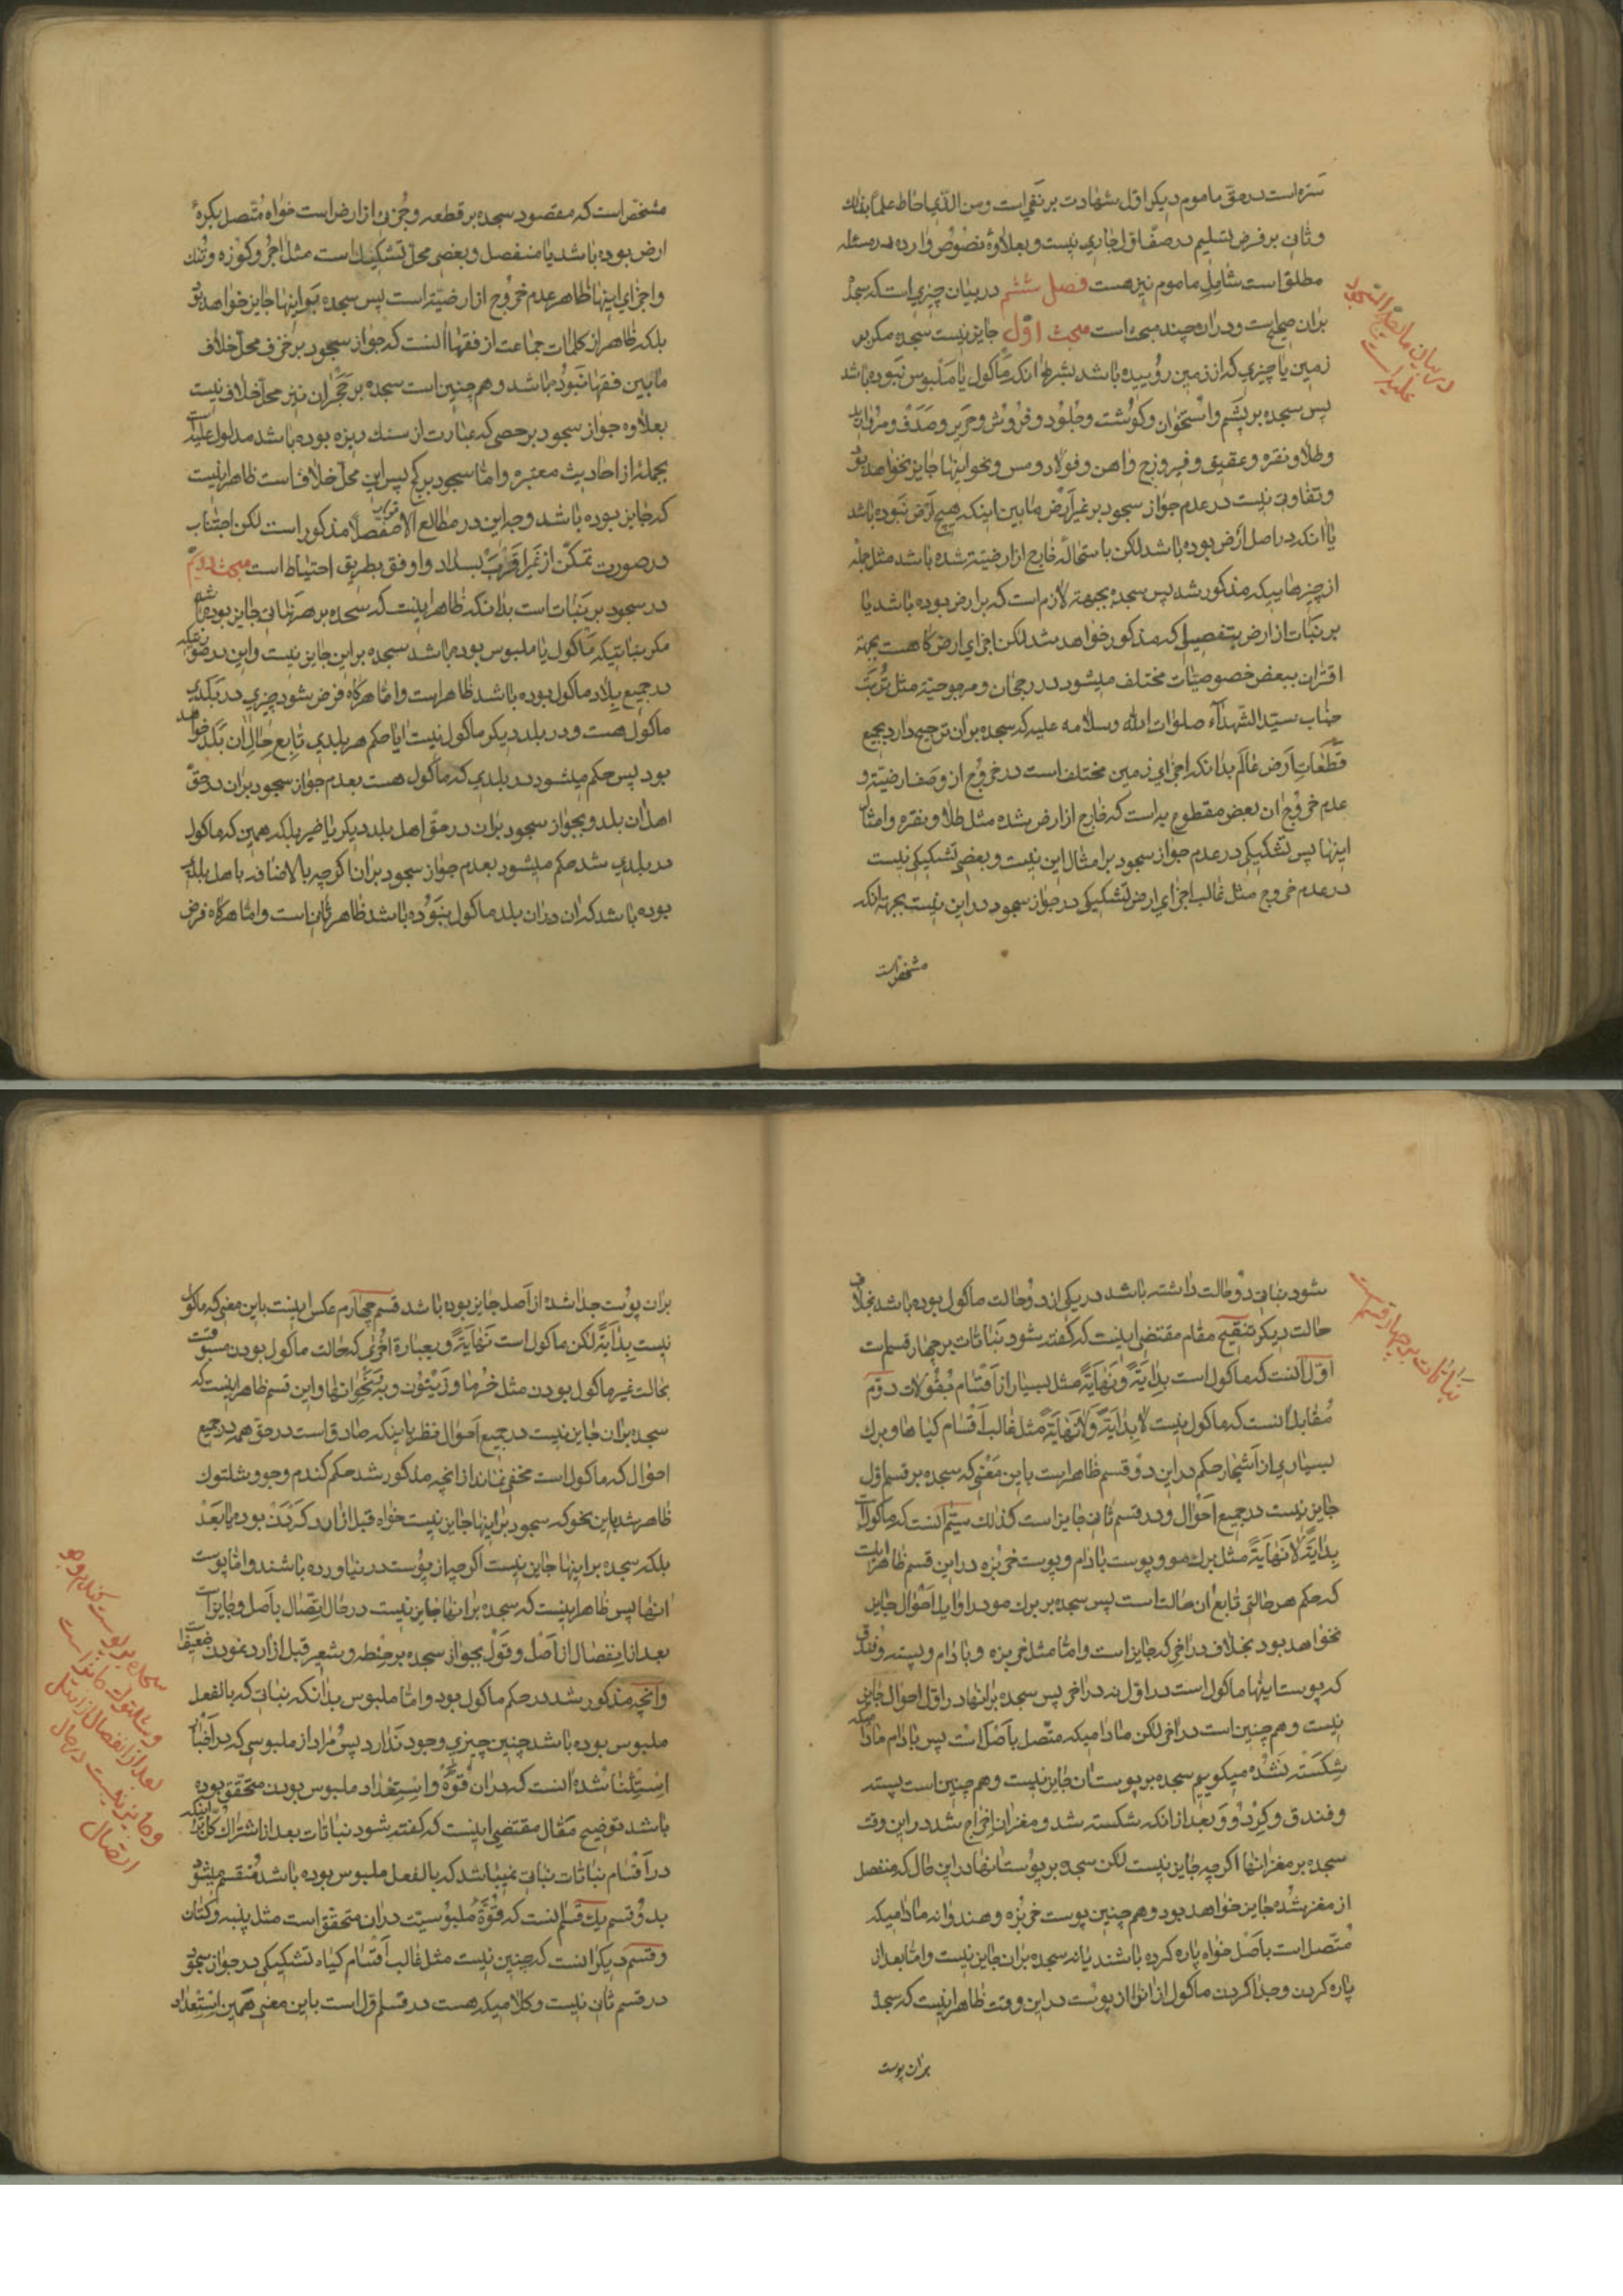 ستره است در حق ماموم دیکر اوّل شهادت بر نفی است ومن الذی احاط علمًا بذلك
وثانی بر فرض تسلیم در صف اول جاری نیست وبعلاوهٔ نصوص وارده در مسئله
مطلق است شامل ماموم نیز هست فصل ششم در بیان چیزی است که سجدهٔ
بران صحیح است ودران چند مبحث است مبحث اوّل جایز نیست سجده مکر بر
زمین یا چیزی که از زمین روُییده باشد بشرط انکه ماکول یا مَلْبوس نَبوده باشد
پس سجده بر پَشم واُستخوان وکوُشت وجلوُد وفروش وحریر وصَدَف ومروارید
وطلا ونقره وعقیق وفیروزج واهن وفولاد ومس ونحو اینها جایز نخواهد بود
وتفاوتی نیست در عدم جواز سجود بر غیر اَرض مابین اینکه هیچ اَرض نبوده باشد
یا انکه در اصل ارض بوده باشد لکن باستحاله خارج از ارضیّت شده باشد مثل جمله
از چیزهاییکه مذکور شد پس سجده بجبهة لازم است که بر ارض بوده باشد یا
بر نبات از ارض بتفصیلی که مذکور خواهد شد لکن اجزای ارض کاهست بجهة
اقتران ببعض خصوصیّات مختلف میشود در رجحان ومرجوحیّة مثل تُربَت
جناب سیّد الشّهدآء صلوات الله وسلامه علیه که سجده بران ترجیح دارد بجمیع
قطعَاتِ اَرض عالَم بدانکه اجزای زمین مختلف است در خروُج از وصف ارضیّة و
عدم خروُج ان بعض مقطوع به است که خارج از ارض شده مثل طلا ونقره وامثال
اینها پس تشکیکی در عدم جواز سجود بر امثال این نیست وبعضی تشکیکی نیست
در عدم خروج مثل غالب اجزای ارض تشکیکی در جواز سجود در این نیست بجهة انکه
مشخص است
در بیان ما یصحّ السّجود
علیه است
مشخص است که مقصود سجده بر قطعه وجُزئی از ارض است خواه مُتّصل بکرهٔ
ارض بوده باشد یا منفصل وبعضی محلّ تشکیك است مثل اجُر وکوزه
واجزای اینها ظاهر عدم خروُج از ارضیّة است پس سجده بر اینها جایز خواهد بود
بلکه ظاهر از کلمات جماعت از فقها انست که جواز سجود بر خزف محلّ خلاف
مابین فقها نَبوده باشد وهم چنین است سجده بر حَجَر ان نیز محلّ خلاف نیست
بعلاوه جواز سجود بر حصی که عبارت از سنك ریزه بوده باشد مدلول علیه است
بجملهٔ از احادیث معتبره وامّا سجود بر کچ پس این محلّ خلاف است ظاهر اینست
که جایز بوده باشد وجه این در مطالع الانوار مفصّلاً مذکور است لکن اجتناب
در صورت تمکّن از غیر اَقرَب بسداد واوفق بطریق احتیاط است مبحث دویّم
در سجود بر نَباتات است بدانکه ظاهر اینست که سجده بر هر نباتی جایز بوده باشد
مکر نباتیکه ماکول یا ملبوس بوده باشد سجده بر این جایز نیست واین در صورتیکه
در جمیع بلاد ماکول بوده باشد ظاهر است وامّا هرکاه فرض شود چیزی در بَلَدی
ماکول هست ودر بلد دیکر ماکول نیست ایا حکم هر بلدی تابع حالِ ان بَلَد خواهد
بود پس حکم میشود در بلدی که ماکول هست بعدم جواز سجود بران در حقّ
اهل ان بلد وبجواز سجود بران در حقّ اهل بلد دیکر یا خیر بلکه همین که ماکول
در بلدی شد حکم میشود بعدم جواز سجود بران اکرچه بالاضافه باهل بلد
بوده باشد که ان دران بلد ماکول نبَوُده باشد ظاهر ثانی است وامّا هرکاه فرض
شود نباتی دوُ حالت داشته باشد در یکی از دوُ حالت ماکول بوده باشد بخلاف
حالت دیکر تنقیح مقام مقتضی اینست که کفته شود نَباتات بر چهار قسم است
اوّل انست که ماکول است بِدایَةً ونَهایَةً مثل بسیار از اَقسام بُقوُلات دوّم
مُقابل انست که ماکول نیست لا بِدایَةً ولا نَهایَةً مثل غالب اَقْسام کیاهها وبرك
بسیاری از اَشجار حکم در این دوُ قسم ظاهر است باین مَعْنی که سجده بر قسم اوّل
جایز نیست در جمیع احَوال ودر قسم ثانی جایز است کذلك سیّم انست که ماکول است
بِدایَةً لا نَهایَةً مثل برك مو وپوست بادام وپوست خَربُزه در این قسم ظاهر اینست
که حکم هر حالتی تابع ان حالت است پس سجده بر برك مو در اوایل اَحوال جایز
نخواهد بود بخلاف در اخر که جایز است وامّا مثل خربزه وبادام وپسته وفندق
که پوست اینها ماکول است در اوّل نه در اخر پس سجده بر انها در اوّل احوال جایز
نیست وهم چنین است در اخر لکن مادامیکه متّصل باَصْل است پس بادام مادامیکه
شکَسْته نَشُدُه میکوییم سجده بر پوست ان جایز نیست وهم چنین است پسته
وفندق وکِرْدوُ وبعد از انکه شکسته شد ومغز ان اِخراج شد در این وقت
سجده بر مغز انها اکرچه جایز نیست لکن سجده بر پوُست انها در این حال که منفصل
از مغز شُده جایز خواهد بود وهم چنین پوست خربُزه وهندوانه مادامیکه
مُتّصل است باَصْل خواه پاره کرده باشند یا نه سجده بران جایز نیست وامّا بعد از
پاره کردن وجدا کردن ماکول از انها از پوُست در این وقت ظاهر اینست که سجدهٔ
بران پوست
نَباتات بر چهار قسم است
بران پوُست جدا شده از اَصل جایز بوده باشد قسم چهارم عکس اینست باین معنی که ماکول
نیست بِدایَةً لکن ماکول است نَهایَةً وبعبارة اُخْری که حالت ماکول بودن مسبوقست
بحالت غیر ماکول بودن مثل خُرما وزَیتوُن واین قسم ظاهر اینست که
سجده بران جایز نیست در جمیع اَحوال نظر باینکه صادق است در حقّ همه در جمیع
احوال که ماکول است مخفی نماند از انچه مذکور شد حکم کندم وجو وشلتوك
ظاهر شد باین نحو که سجود بر اینها جایز نیست خواه قبل از ارد کَرْدَن بوده یا بَعْد
بلکه سجده بر اینها جایز نیست اکرچه از پوُست در نیاورده باشند وامّا پوست
انها پس ظاهر اینست که سجده بر انها جایز نیست در حال اتّصال باَصل وجایز است
بعد از اِنفصال از اَصْل وقَوْل بجواز سجده بر حِنطه وشَعیر قبل از ارد نمودن ضعیف است
وانچه مذکور شد در حکم ماکول بود وامّا ملبوس بدانکه نباتی که بالفعل
ملبوس بوده باشد چنین چیزی وجود نَدارد پس مُراد از ملبوسی که در اَخبار
اِستِثْنا شُده انست که دران قُوّهٔ واِسْتِعْداد ملبوس بودن متحقّق بوده
باشد توضیح مَقال مقتضی اینست که کفته شود نباتات بعد از اشتراك کلّ در اینکه
در اَقْسام نباتات نباتی نمیباشد که بالفعل ملبوس بوده باشد مُنقسم میشود
بدوُ قسم یك قسم انست که قُوّهٔ مَلبوُسیّت دران متحقّق است مثل پنبه وکتّان
وقسم دیکر انست که چنین نیست مثل غالب اَقسام کیاه تشکیکی در جواز سجود
در قسم ثانی نیست وکلامیکه هست در قسم اوّل است باین معنی همین اِسْتِعْداد
سجده بر پوست کندم وجو
وشلتوك جایز است
بعد از انفصال از اصل
وجایز نیست در حال
اتصال